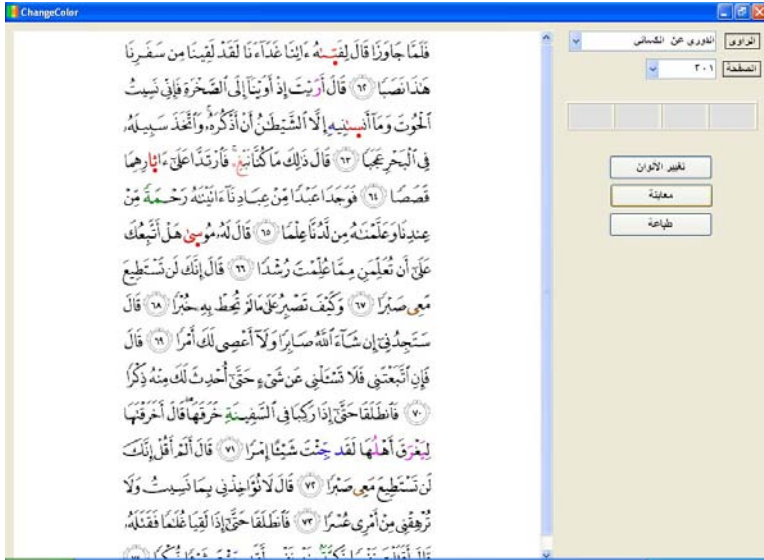 ChangeColor
فَلَمَّا جَاوَزَا قَالَ لِفَتَىٰهُ ءَاتِنَا غَدَآءَنَا لَقَدْ لَقِينَا مِن سَفَرِنَا
هَٰذَا نَصَبًا ٦٢ قَالَ أَرَيْتَ إِذْ أَوَيْنَآ إِلَى ٱلصَّخْرَةِ فَإِنِّى نَسِيتُ
ٱلْحُوتَ وَمَآ أَنسَىٰنِيهِ إِلَّا ٱلشَّيْطَٰنُ أَنْ أَذْكُرَهُۥ وَٱتَّخَذَ سَبِيلَهُۥ
فِى ٱلْبَحْرِ عَجَبًا ٦٣ قَالَ ذَٰلِكَ مَا كُنَّا نَبْغِۦ فَٱرْتَدَّا عَلَىٰٓ ءَاثَارِهِمَا
قَصَصًا ٦٤ فَوَجَدَا عَبْدًا مِّنْ عِبَادِنَآ ءَاتَيْنَٰهُ رَحْمَةً مِّنْ
عِندِنَا وَعَلَّمْنَٰهُ مِن لَّدُنَّا عِلْمًا ٦٥ قَالَ لَهُۥ مُوسَىٰ هَلْ أَتَّبِعُكَ
عَلَىٰٓ أَن تُعَلِّمَنِ مِمَّا عُلِّمْتَ رُشْدًا ٦٦ قَالَ إِنَّكَ لَن تَسْتَطِيعَ
مَعِى صَبْرًا ٦٧ وَكَيْفَ تَصْبِرُ عَلَىٰ مَا لَمْ تُحِطْ بِهِۦ خُبْرًا ٦٨ قَالَ
سَتَجِدُنِىٓ إِن شَآءَ ٱللَّهُ صَابِرًا وَلَآ أَعْصِى لَكَ أَمْرًا ٦٩ قَالَ
فَإِنِ ٱتَّبَعْتَنِى فَلَا تَسْـَٔلْنِى عَن شَىْءٍ حَتَّىٰٓ أُحْدِثَ لَكَ مِنْهُ ذِكْرًا
٧٠ فَٱنطَلَقَا حَتَّىٰٓ إِذَا رَكِبَا فِى ٱلسَّفِينَةِ خَرَقَهَا قَالَ أَخَرَقْتَهَا
لِيَغْرَقَ أَهْلُهَا لَقَدْ جِئْتَ شَيْـًٔا إِمْرًا ٧١ قَالَ أَلَمْ أَقُلْ إِنَّكَ
لَن تَسْتَطِيعَ مَعِى صَبْرًا ٧٢ قَالَ لَا تُؤَاخِذْنِى بِمَا نَسِيتُ وَلَا
تُرْهِقْنِى مِنْ أَمْرِى عُسْرًا ٧٣ فَٱنطَلَقَا حَتَّىٰٓ إِذَا لَقِيَا غُلَٰمًا فَقَتَلَهُۥ
الراوى
الدورى عن الكسائى
الصفحة
٣٠١
تغيير الألوان
معاينة
طباعة